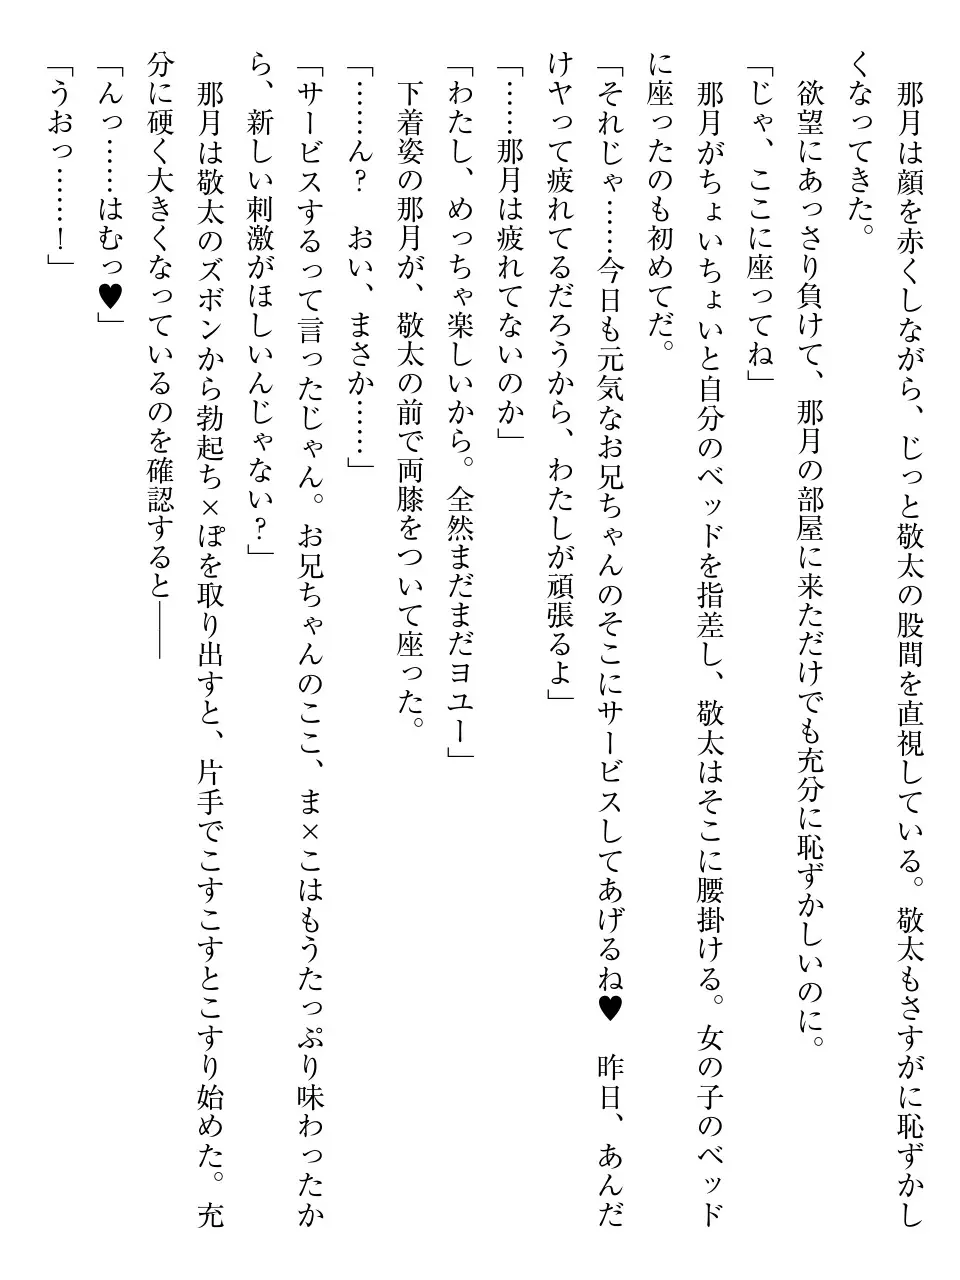 那月は顔を赤くしながら、じっと敬太の股間を直視している。敬太もさすがに恥ずかし
くなってきた。
　欲望にあっさり負けて、那月の部屋に来ただけでも充分に恥ずかしいのに。
「じゃ、ここに座ってね」
　那月がちょいちょいと自分のベッドを指差し、敬太はそこに腰掛ける。女の子のベッド
に座ったのも初めてだ。
「それじゃ……今日も元気なお兄ちゃんのそこにサービスしてあげるね♥　昨日、あんだ
けヤって疲れてるだろうから、わたしが頑張るよ」
「……那月は疲れてないのか」
「わたし、めっちゃ楽しいから。全然まだまだヨユー」
　下着姿の那月が、敬太の前で両膝をついて座った。
「……ん？　おい、まさか……」
「サービスするって言ったじゃん。お兄ちゃんのここ、ま×こはもうたっぷり味わったか
ら、新しい刺激がほしいんじゃない？」
　那月は敬太のズボンから勃起ち×ぽを取り出すと、片手でこすこすとこすり始めた。充
分に硬く大きくなっているのを確認すると――
「んっ……はむっ♥」
「うおっ……！」